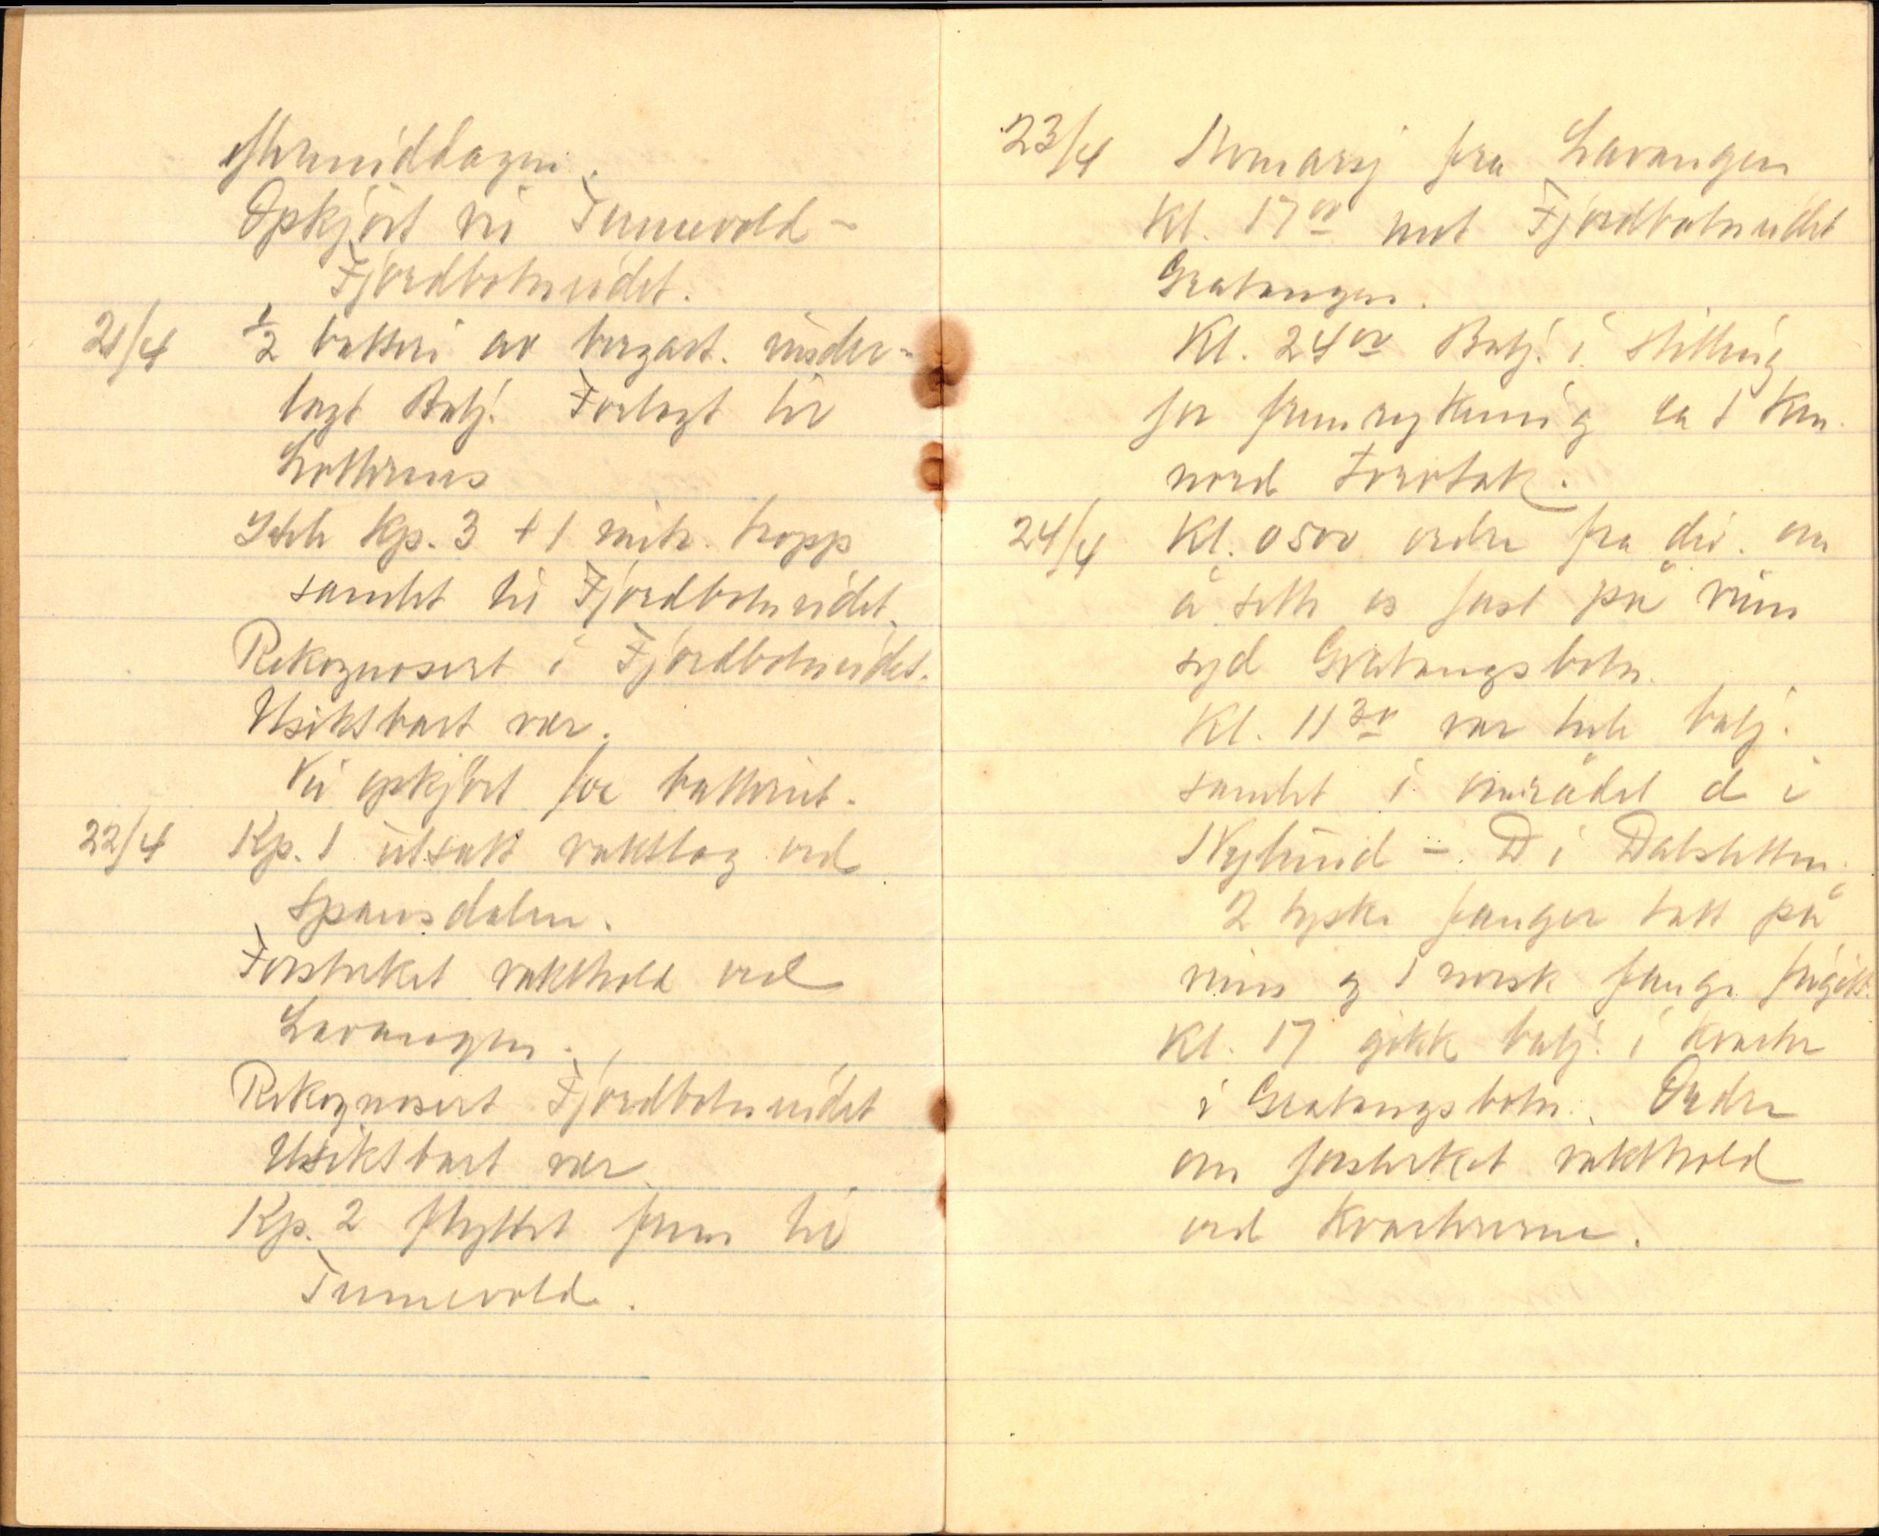 eftermiddagen.
Opkjört vei Tennevold -
Fjordbotneidet.
21/4 1/2 batteri av bergart. under-
lagt Batj. Forlagt til
Løktrenes
Hele Kp. 3 + 1 mitr. tropp
samlet til Fjordbotneidet.
Rekognosert i Fjordbotneidet.
Usiktbart vær.
Vei opkjört for batteriet.
22/4 Kp. 1 utsatt vaktlag ved
Spansdalen.
Forsterket vakthold ved
Lavangen.
Rekognosert Fjordbotneidet
Usiktbart vær.
Kp. 2 flyttet frem til
Tennevold.
23/4 marsj fra Lavangen
Kl. 17 00 mot Fjordbotneidet
Gratangen.
Kl. 24 00 Batj. i stilling
for fremrykning ca 1 km.
nord Fossbak.
24/4 Kl. 0500 ordre fra div. om
å sette os fast på
syd Gratangsbotn.
Kl. 11 30 var hele batj.
samlet i området d i
Nylund - D i Dalsletten.
2 tyske fanger tatt på
og 1 norsk fange frigitt.
Kl. 17 gikk batj. i kvarter
i Gratangsbotn. Ordre
om forsterket vakthold
ved kvarterene.